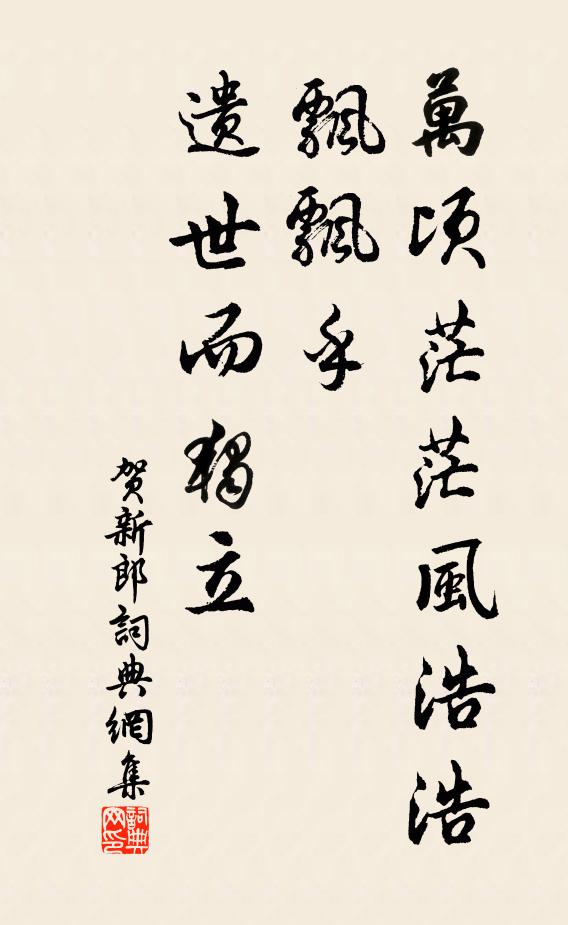 萬頃茫茫風浩浩
飄飄乎
遺世而獨立
贺新郎詞典網集
詞典
网印